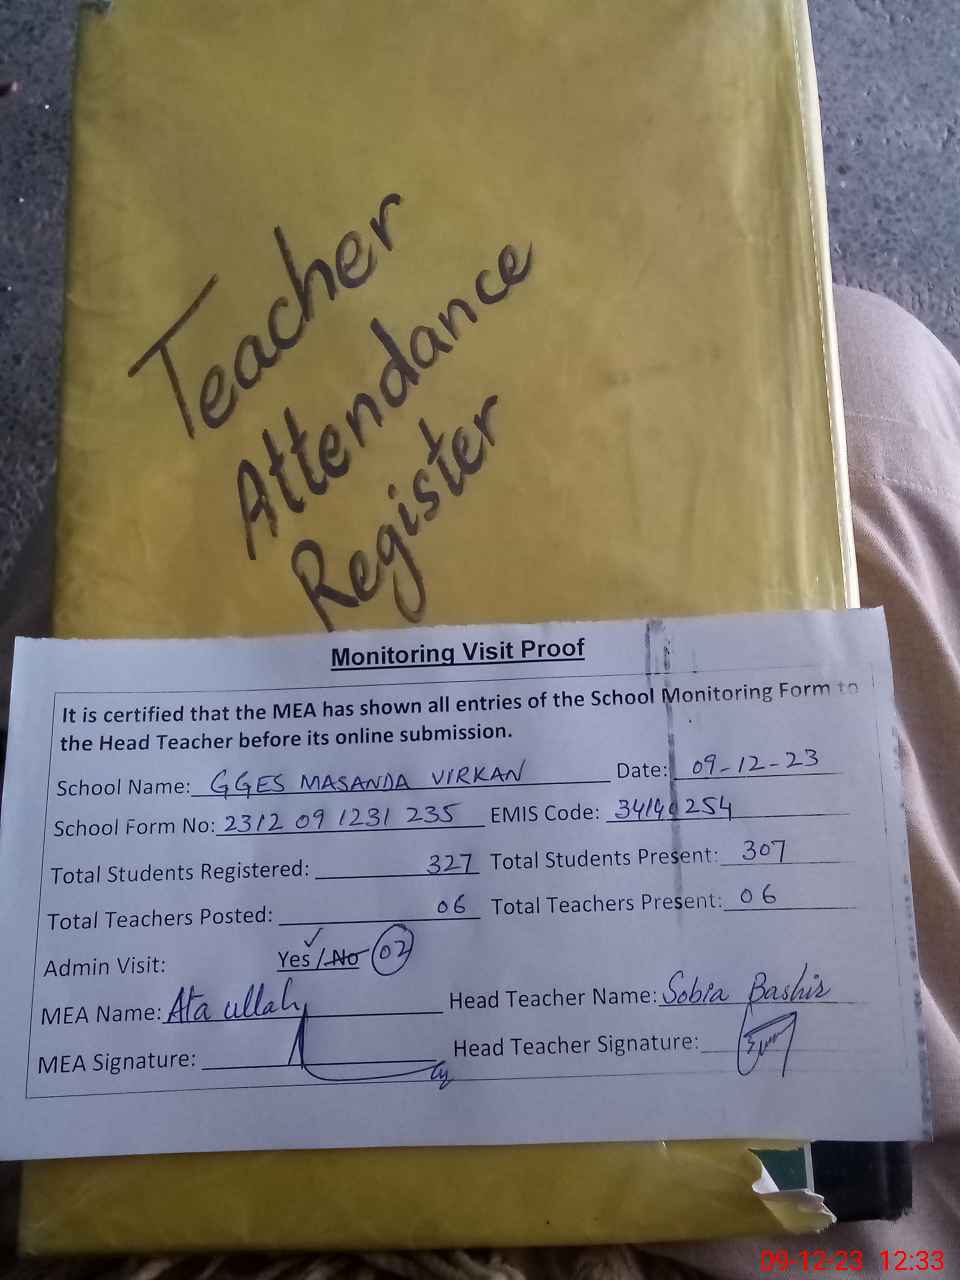 Teacher
Attendance
Register
Monitoring Visit Proof
It is certified that the MEA has shown all entries of the School Monitoring Form to
the Head Teacher before its online submission.
School Name: GGES MASANDA VIRKAN Date: 09-12-23
School Form No: 2312 09 1231 235 EMIS Code:
Total Students Registered: 327 Total Students Present: 307
Total Teachers Posted: 06 Total Teachers Present: 06
Admin Visit: Yes / No 02
MEA Name: Ata ullah Head Teacher Name: Sobia Bashir
MEA Signature: Head Teacher Signature:
09-12-23 12:33